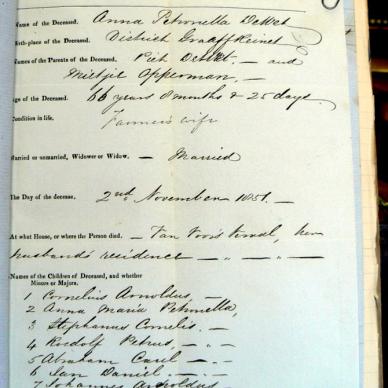 Name of the Deceased. Anna Petronella DeWet
Birth-place of the Deceased. District Graaff Reinet
Names of the Parents of the Deceased. Piet DeWet. — and
Mietjie Opperman. —
Age of the Deceased. 66 years 8 months & 25 days
Condition in life. Farmer's wife
Married or unmarried, Widower or Widow. — Married
The Day of the decease. 2nd November 1851. —
At what House, or where the Person died. — Van her
husband's residence — „ — „ — „ —
Names of the Children of Deceased, and whether
Minors or Majors.
1 Cornelius Arnoldus, —
2 Anna Maria Petronella,
3 Stephanus Cornelis. —
4 Rudolf Petrus, — „ —
5 Abraham Carel — „ —
6 Jan Daniel. — „ —
7 Johannes Arnoldus